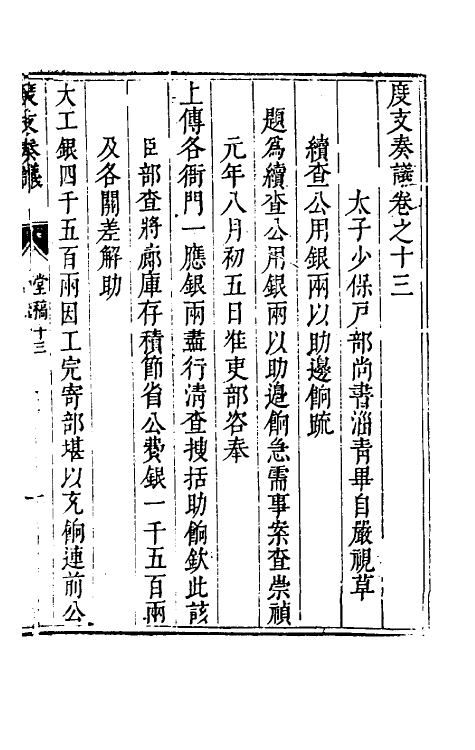 度支奏議卷之十三
太子少保戸部尚書淄靑畢自嚴視草
續查公用銀兩以助邊餉疏
題爲續查公用銀兩以助邊餉急需事案查崇禎
元年八月初五日准吏部咨奉
上傳各衙門一應銀兩盡行清查搜括助餉欽此該
臣部查將廊庫存積節省公費銀一千五百兩
及各關差解助
大工銀四千五百兩因工完寄部堪以充餉連前公
度支奏議
堂稿十三
一